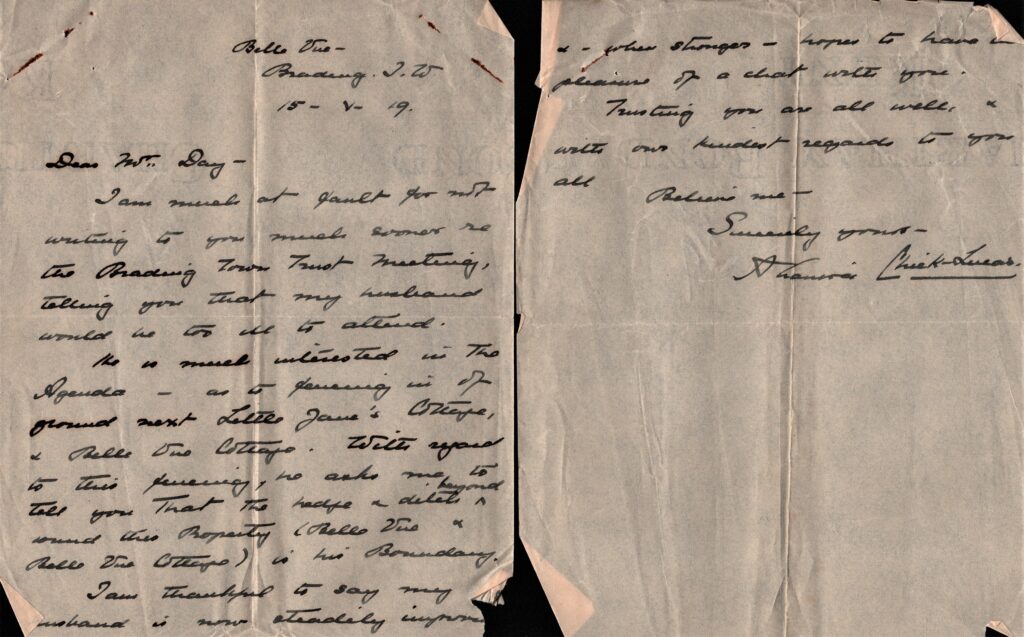 Belle Vue –
Brading. I. W
15 – X – 19.
Dear Mr. Day –
I am much at fault for not
writing to you much sooner re
the Brading Town Trust Meeting,
telling you that my husband
would be too ill to attend.
He is much interested in the
Agenda – as to fencing in of
ground next Little Jane's Cottage,
& Belle Vue Cottage. With regard
to this fencing, he asks me to
tell you that the hedge & ditch beyond
round this Property (Belle Vue &
Belle Vue Cottage) is his Boundary.
I am thankful to say my
husband is now steadily improv
& – when stronger – hopes to have
pleasure of a chat with you.
Trusting you are all well, &
with our kindest regards to you
all
Believe me –
Sincerely yours –
Chick-Lucas.